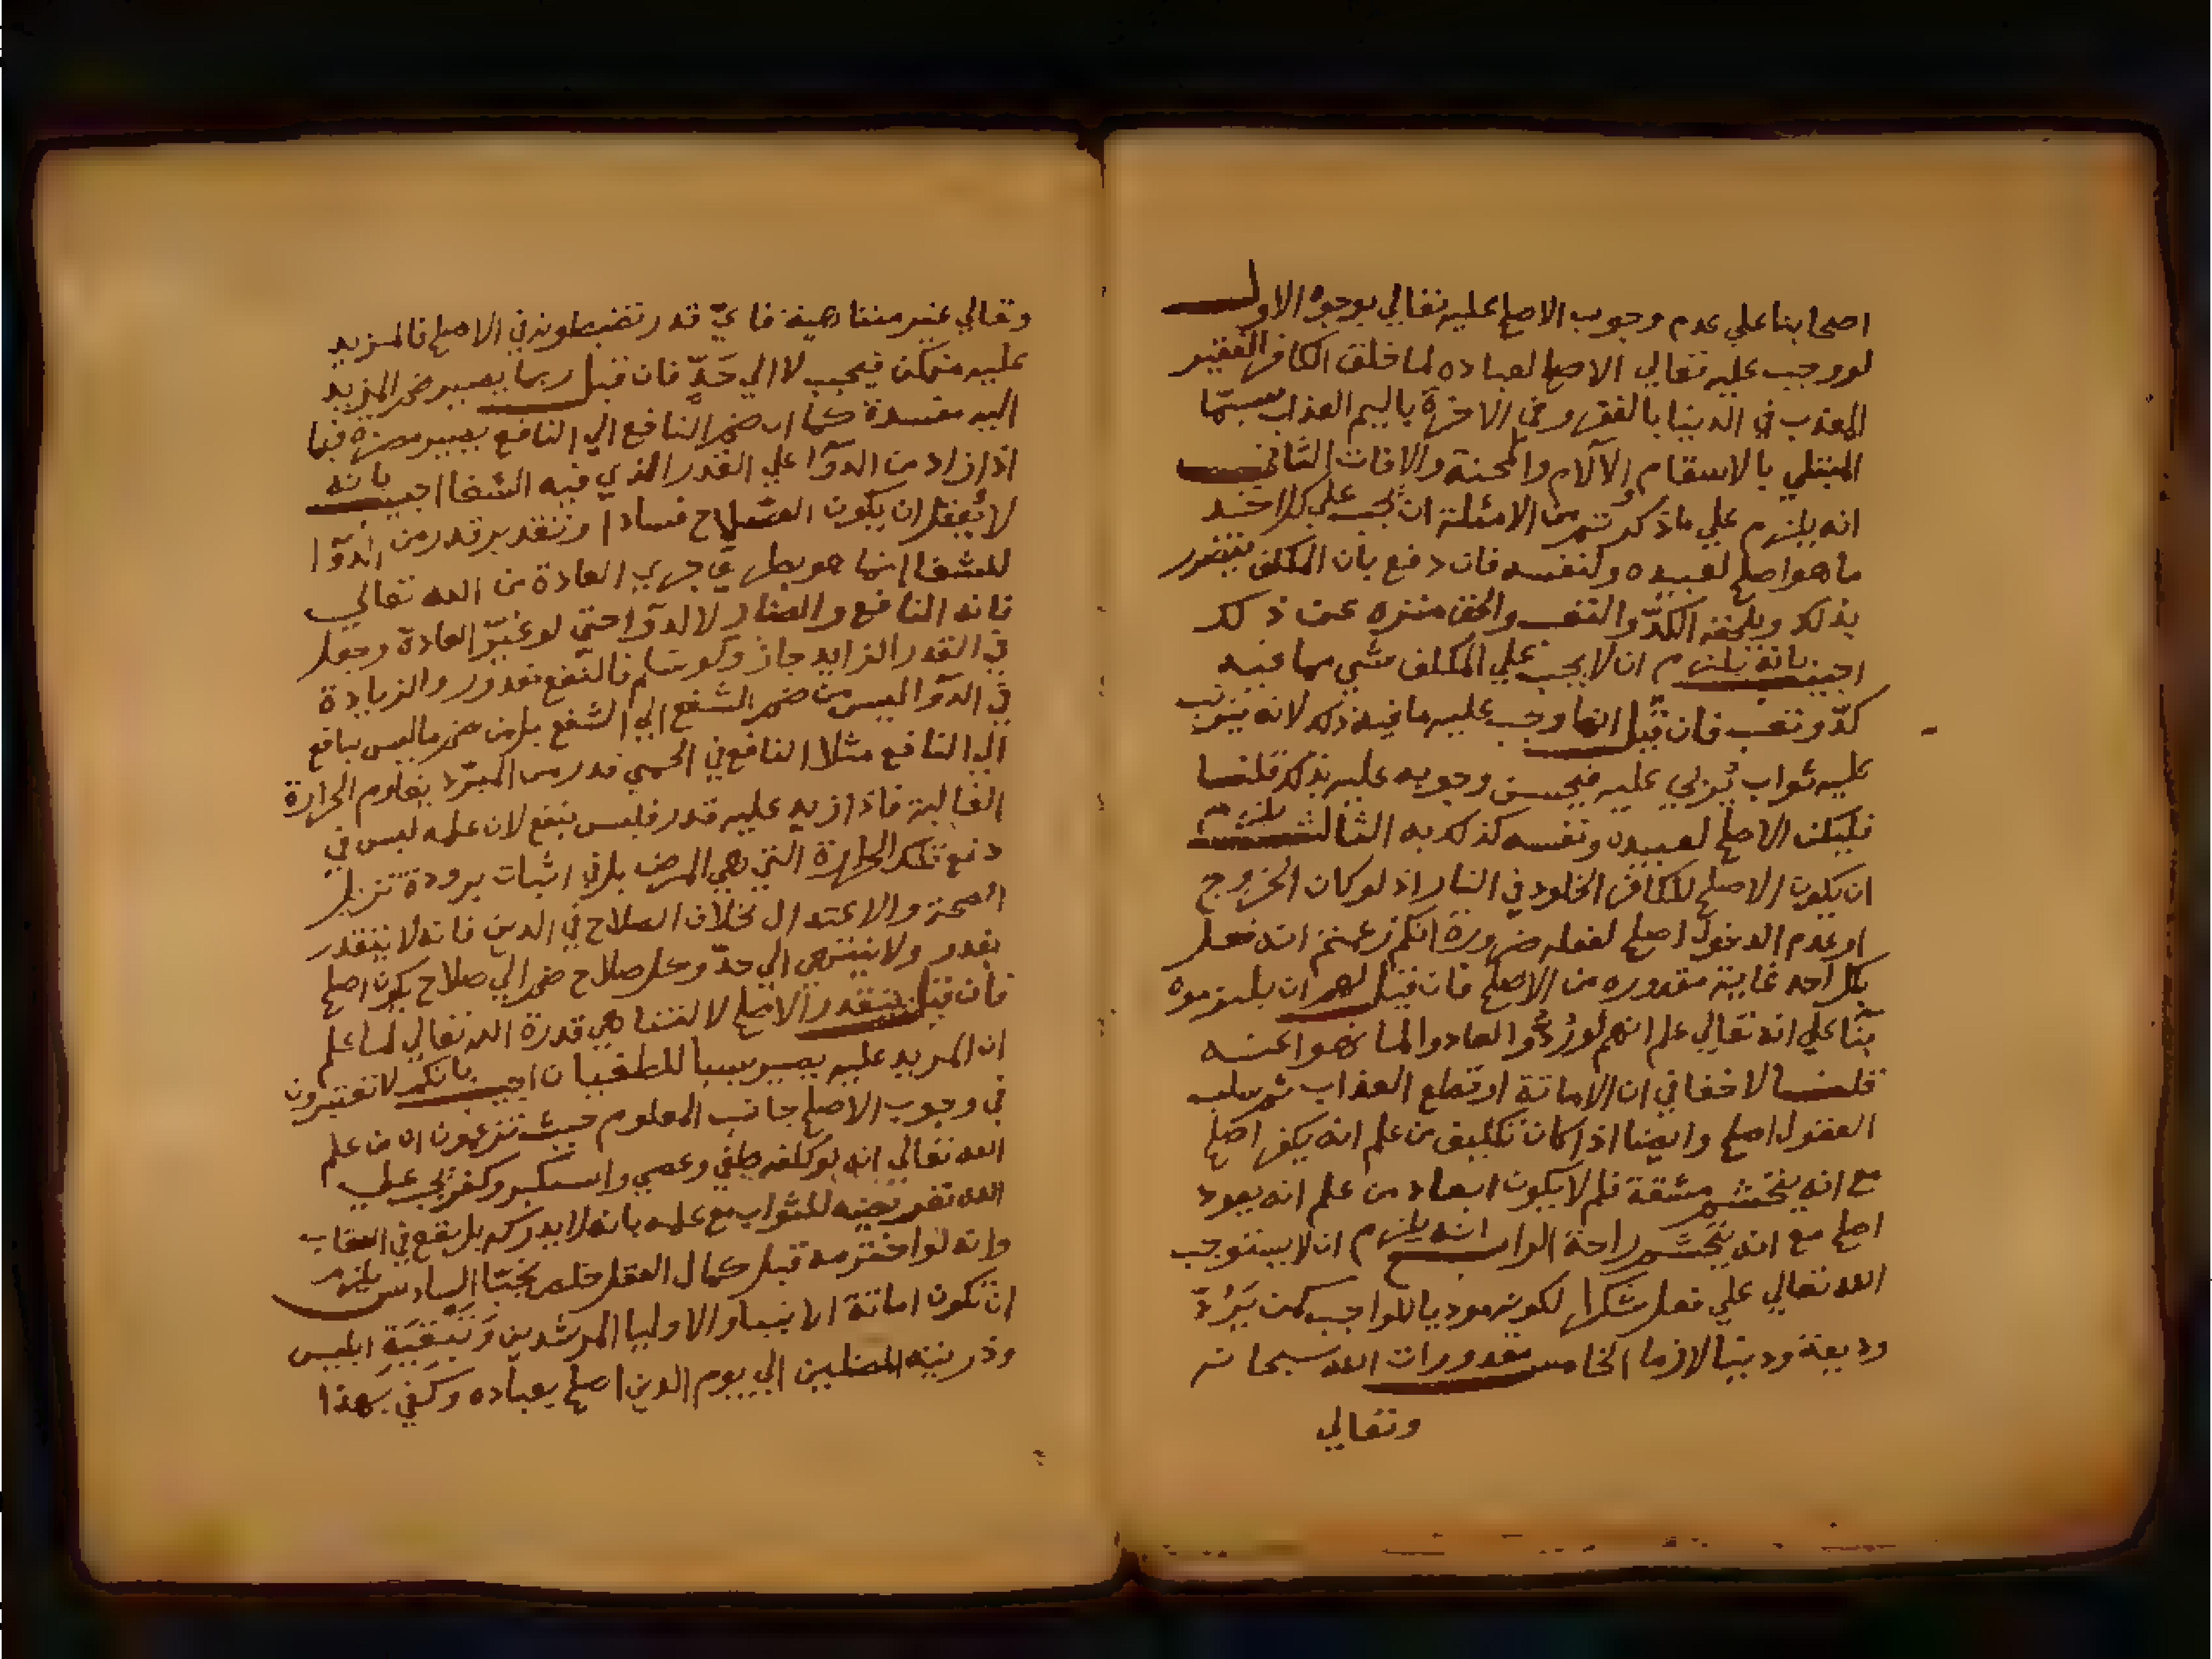 اصحابنا علي عدم وجوب الاصلح عليه تعالي بوجوه الاول
لو وجب عليه تعالي الاصلح لعباده لما خلق الكافر الفقير
المعذب في الدنيا بالفقر وفي الاخرة باليم العذاب سيما
المبتلي بالاسقام والآلام والمحنة والافات الثاني
انه يلزم علي ما ذكرتم من الامثلة ان يجب علي كل احد
ما هو اصلح لعبيده ولنفسه فان دفع بان المكلف يتضرر
بذلك ويلحقه الكدّ والتعب والحق منزه عن ذلك
اجيب بانه يلزم ان لا يجب علي المكلف شي مما فيه
كدّ وتعب فان قيل انما وجب عليه ما فيه ذلك لانه يترتب
عليه ثواب يُربي عليه فيحسن وجوبه عليه بذلك قلنا
فليكن الاصلح لعبيده ونفسه كذلك به الثالث يلزم
ان يكون الاصلح للكافر الخلود في النار اذ لو كان الخروج
او عدم الدخول اصلح لفعله ضرورة انكم زعمتم انه فعل
بكل احد غاية مقدوره من الاصلح فان قيل لهم ان يلتزموه
بنّا علي انه تعالي علم انهم لو رُدُّوا لعادوا لما نهوا عنه
قلنا لا خفا في ان الاماتة او قطع العذاب ثم سلب
العقول اصلح وايضا اذا كان تكليف من علم انه يكفر اصلح
مع انه يتجشم مشقة فلم لا يكون ابعاد من علم انه يعود
اصلح مع انه يتجشم راحة الرابع انه يلزم ان لا يستوجب
الله تعالي علي فعل شكرا لكونه موديا للواجب كمن يَرُدّ
وديعة ودينا لازما الخامس مقدورات الله سبحانه
وتعالي
وتعالي غير متناهية فايّ قدر تضبطونه في الاصلح فالمزيد
عليه ممكن فيجب لا الي حَدّ فان قيل ربما يصير ضم المزيد
اليه مفسدة كما ان ضم النافع الي النافع يصير مضرة فيما
اذا زاد من الدوآ علي القدر الذي فيه الشفا اجيب بانه
لا يُعقل ان يكون الصلاح فسادا وتقدير قدر من الدوآ
للشفا انما هو بطريق جري العادة من الله تعالي
فانه النافع والضار لا الدوآ حتي لو غيّر العادة وجعل
في القدر الزايد جاز ولو سلم فالنفع مقدور والزيادة
في الدوآ ليس من ضم الشفع الي الشفع بل من ضم ما ليس بنافع
الي النافع مثلا النافع في الحمي قدر من المبرّد يقاوم الحرارة
الغالبة فاذا زيد عليه قدر فليس بنفع لان عمله ليس في
دفع تلك الحرارة التي هي المرض بل في اثبات برودة تزيل
الصحة والاعتدال بخلاف الصلاح في الدين فانه لا يتقدر
بقدر ولا ينتهي الي حدّ وكل صلاح ضم الي صلاح يكون اصلح
فان قيل يتقدر الاصلح لا لتناهي قدرة الله تعالي لما علم
ان المزيد عليه يصير سببا للطغيان اجيب بانكم لا تعتبرون
في وجوب الاصلح جانب المعلوم حيث تزعمون ان من علم
الله تعالي انه لو كلفه طغي وعصي واستكبر وكفر يجب علي
الله تعريضه للثواب مع علمه بانه لا يدركه بل يقع في العقاب
وانه لو اخترمه قبل كمال العقل خلص نجيّا السادس يلزم
ان تكون اماتة الانبيا والاوليا المرشدين وَتَبْقيَة ابليس
وذريته المضلين الي يوم الدين اصلح بعباده وكفي بهذا